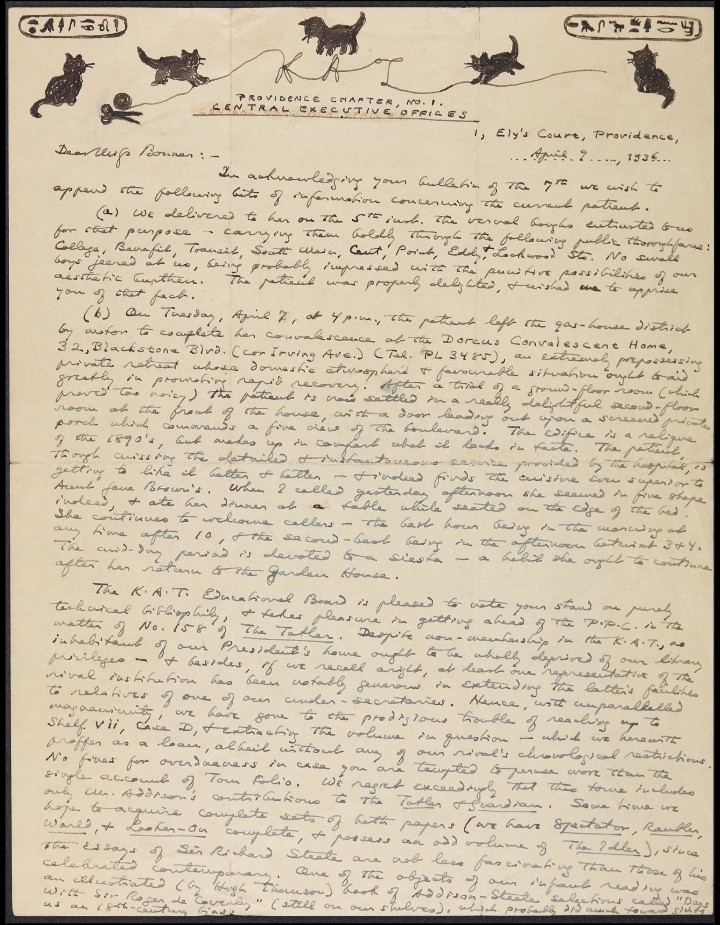 K A T
PROVIDENCE CHAPTER, NO. 1.
CENTRAL EXECUTIVE OFFICES
1, Ely's Court, Providence,
April 9, 1936
Dear Miss Bonner:—
In acknowledging your bulletin of the 7th we wish to
append the following bits of information concerning the current patient.
(a) We delivered to her on the 5th inst. the vernal boughs entrusted to us
for that purpose — carrying them boldly through the following public thoroughfares:
College, Benefit, Transit, South Main, Cent, Point, Eddy, & Lockwood Sts. No small
boys jeered at us, being probably impressed with the punitive possibilities of our
aesthetic burthen. The patient was properly delighted, & wished us to apprise
you of that fact.
(b) On Tuesday, April 7, at 4 p.m., the patient left the gas-house district
by motor to complete her convalescence at the Dorcas Convalescent Home,
32, Blackstone Blvd. (cor Irving Ave.) (Tel. PL 3485), an extremely prepossessing
private retreat whose domestic atmosphere & favourable situation ought to aid
greatly in promoting rapid recovery. After a trial of a ground-floor room (which
proved too noisy) the patient is now settled in a really delightful second-floor
room at the front of the house, with a door leading out upon a screened private
porch which commands a fine view of the boulevard. The edifice is a relique
of the 1890's, but makes up in comfort what it lacks in taste. The patient,
though missing the detailed & instantaneous service provided by the hospital, is
getting to like it better & better — & indeed finds the cuisine even superior to
Aunt Jane Brown's. When I called yesterday afternoon she seemed in fine shape
indeed, & ate her dinner at a table while seated on the edge of the bed.
She continues to welcome callers — the best hour being in the morning at
any time after 10, & the second-best being in the afternoon betwixt 3 & 4.
The mid-day period is devoted to a siesta — a habit she ought to continue
after her return to the Garden House.
The K.A.T. Educational Board is pleased to note your stand on purely
technical bibliophily, & takes pleasure in getting ahead of the P.P.C. in the
matter of No. 158 of The Tatler. Despite non-membership in the K.A.T., no
inhabitant of our President's home ought to be wholly deprived of our library
privileges — & besides, if we recall aright, at least one representative of the
rival institution has been notably generous in extending the latter's facilities
to relatives of one of our under-secretaries. Hence, with unparallelled
magnanimity, we have gone to the prodigious trouble of reaching up to
Shelf VII, Case D, & extracting the volume in question — which we herewith
proffer as a loan, albeit without any of our rival's chronological restrictions.
No fines for overdueness in case you are tempted to peruse more than the
single account of Tom Folio. We regret exceedingly that this tome includes
only Mr. Addison's contributions to the Tatler & Guardian. Some time we
hope to acquire complete sets of both papers (we have Spectator, Rambler,
World, & Looker-On complete, & possess an odd volume of The Idler), since
the Essays of Sir Richard Steele are not less fascinating than those of his
celebrated contemporary. One of the objects of our infant reading was
an illustrated (by Hugh Thomson) book of Addison-Steele selections called "Days
with Sir Roger de Coverley" (still on our shelves), which probably did much toward giving
us an 18th-century bias